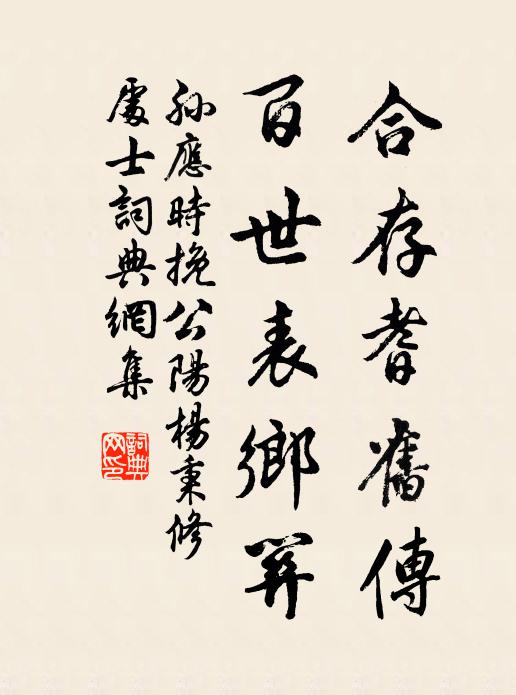 合存耆舊傳
百世表鄉關
孫應時挽公陽楊秉修
處士詞典網集
詞典網印